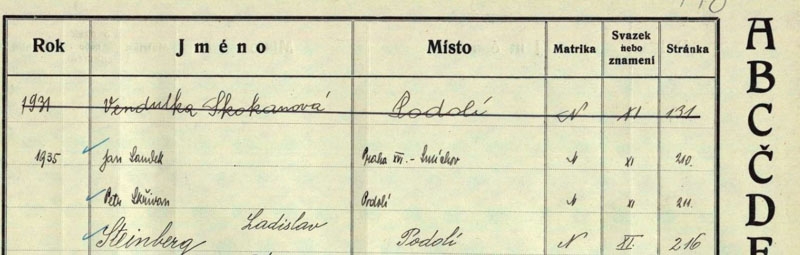 Rok Jméno Místo Matrika Svazek nebo znamení Stránka
1931 Vendulka Skokanová Podolí N XI 131
1935 Jan Soudek Praha XVI. - Smíchov N XI 210.
Petr Skřivan Podolí N XI 211.
Steinberg Ladislav Podolí N XI. 216
A
B
C
Č
D